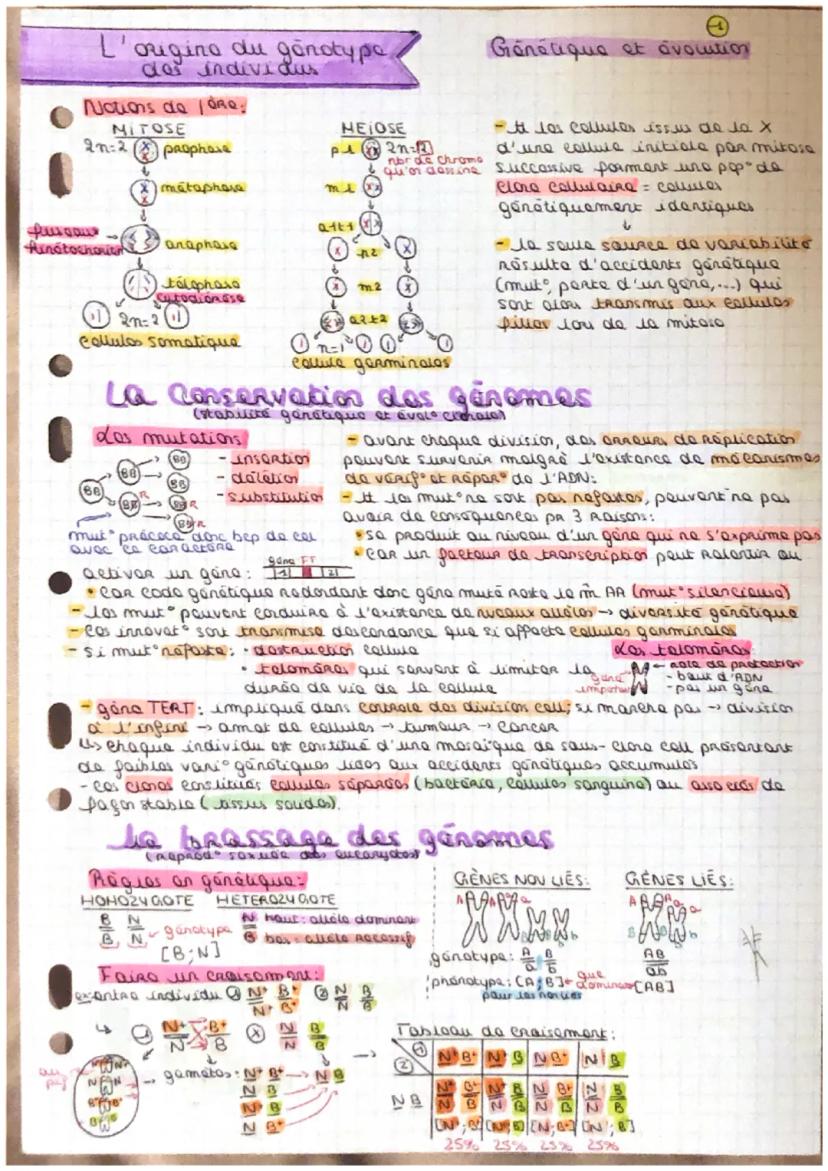 -1
L'origine du génotype
des individus
Génétique et évolution
Notions de 1ère:
MITOSE
2n=2
prophase
métaphase
fuseau
kinétochorien
anaphase
télophase
cytodiérèse
2n=2
cellules somatique
MEIOSE
p1
2n=2
nbr de chromo
qu'on dessine
m1
a1t1
p2
m2
a2t2
n=1
cellule germinales
- tt les cellules issus de la X
d'une cellule initiale par mitose
successive forment une pop° de
clone cellulaire = cellules
génétiquement identiques
↓
- la seule source de variabilité
résulte d'accidents génétique
(mut°, perte d'un gène,...) qui
sont alors transmis aux cellules
filles lors de la mitose
La Conservation des génomes
(stabilité génétique et évol° clonale)
Les mutations
BB
BB
BB
BB
BB R
BB R
BB R
- insertion
- délétion
- substitution
mut° précoce donc bcp de cel
avec ce caractère
- avant chaque division, des erreurs de réplication
peuvent survenir malgré l'existence de mécanismes
de vérif° et répar° de l'ADN:
- tt les mut° ne sont pas néfastes, peuvent ne pas
avoir de conséquences pr 3 raisons:
• se produit au niveau d'un gène qui ne s'exprime pas
• car un facteur de transcription peut ralentir ou
activer un gène:
gène FT
• car code génétique redondant donc gène muté reste le m̂ AA (mut° silencieuse)
- les mut° peuvent conduire à l'existence de nveaux allèles → diversité génétique
- ces innovat° sont transmise descendance que si affecte cellules germinales
- si mut° néfaste: • destruction cellule
• télomères qui servent à limiter la
durée de vie de la cellule
Les télomères:
gène
important
← role de protection
- bout d'ADN
- pas un gène
- gène TERT: impliqué dans controle des division cell; si marche pas → division
à l'infini → amat de cellules → tumeur → cancer
↳ chaque individu est constitué d'une mosaïque de sous-clone cell présentant
de faibles vari° génétiques liées aux accidents génétiques accumulés
- ces clones constitués cellules séparées (bactérie, cellules sanguine) ou associés de
façon stable (tissus solides).
Le brassage des génomes
(reprod° sexuée des eucaryotes)
Règles en génétique:
HOMOZYGOTE
B N
B N
← génotype
[B;N]
HETEROZYGOTE
N haut: allèle dominant
B bas: allèle récessif
GÈNES NON LIÉS:
A A a a
B B b b
génotype: A B
a b
phénotype: [A;B] ← que
dominant
pour les non liés
GÈNES LIÉS:
A A a a
B B b b
AB
ab
[AB]
Faire un croisement:
ex: entre individu ① N+ B+ ② N B
N B N B
↳ ① N+ B+ ⓧ N B
N B N B
→ gamètes: N+ B+ → N B
N B
N+ B
N B+
Tableau de croisement:
① ②
N+ B+
N+ B
N B+
N B
N B
N+ B+
N B
N+ B
N B
N B+
N B
N B
N B
[N+;B+]
[N+;B]
[N;B+]
[N;B]
25% 25% 25% 25%